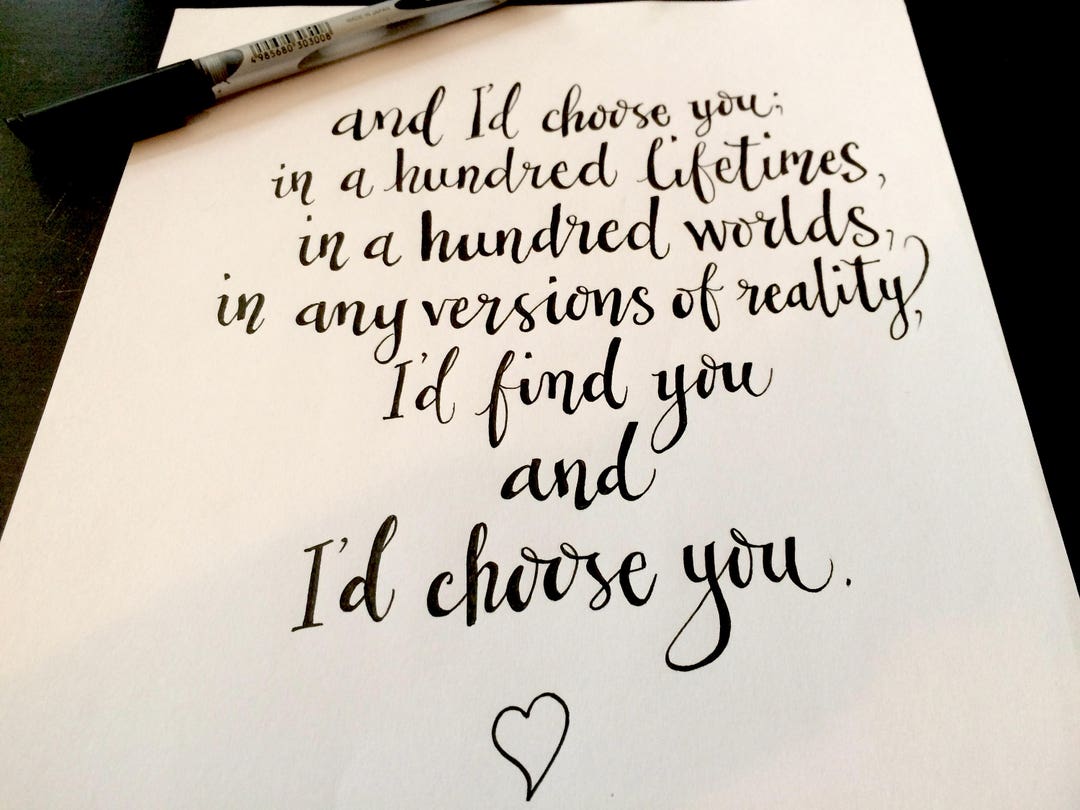 MADE IN JAPAN
4985680303008
and I'd choose you;
in a hundred lifetimes,
in a hundred worlds,
in any versions of reality,
I'd find you
and
I'd choose you.